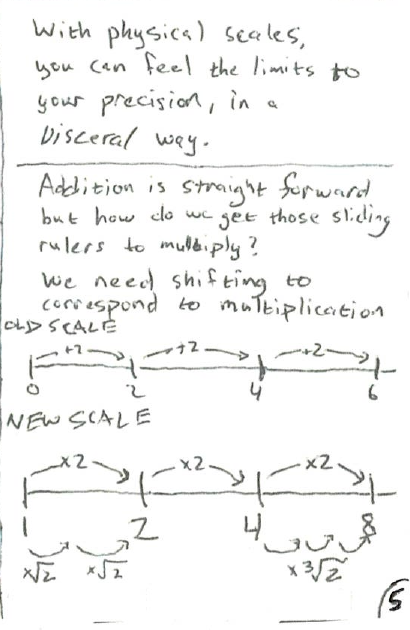 With physical scales,
you can feel the limits to
your precision, in a
visceral way.
Addition is straight forward
but how do we get those sliding
rulers to multiply?
We need shifting to
correspond to multiplication
OLD SCALE
+2 +2 +2
0 2 4 6
NEW SCALE
×2 ×2 ×2
1 2 4 8
×√2 ×√2 ×∛2
5